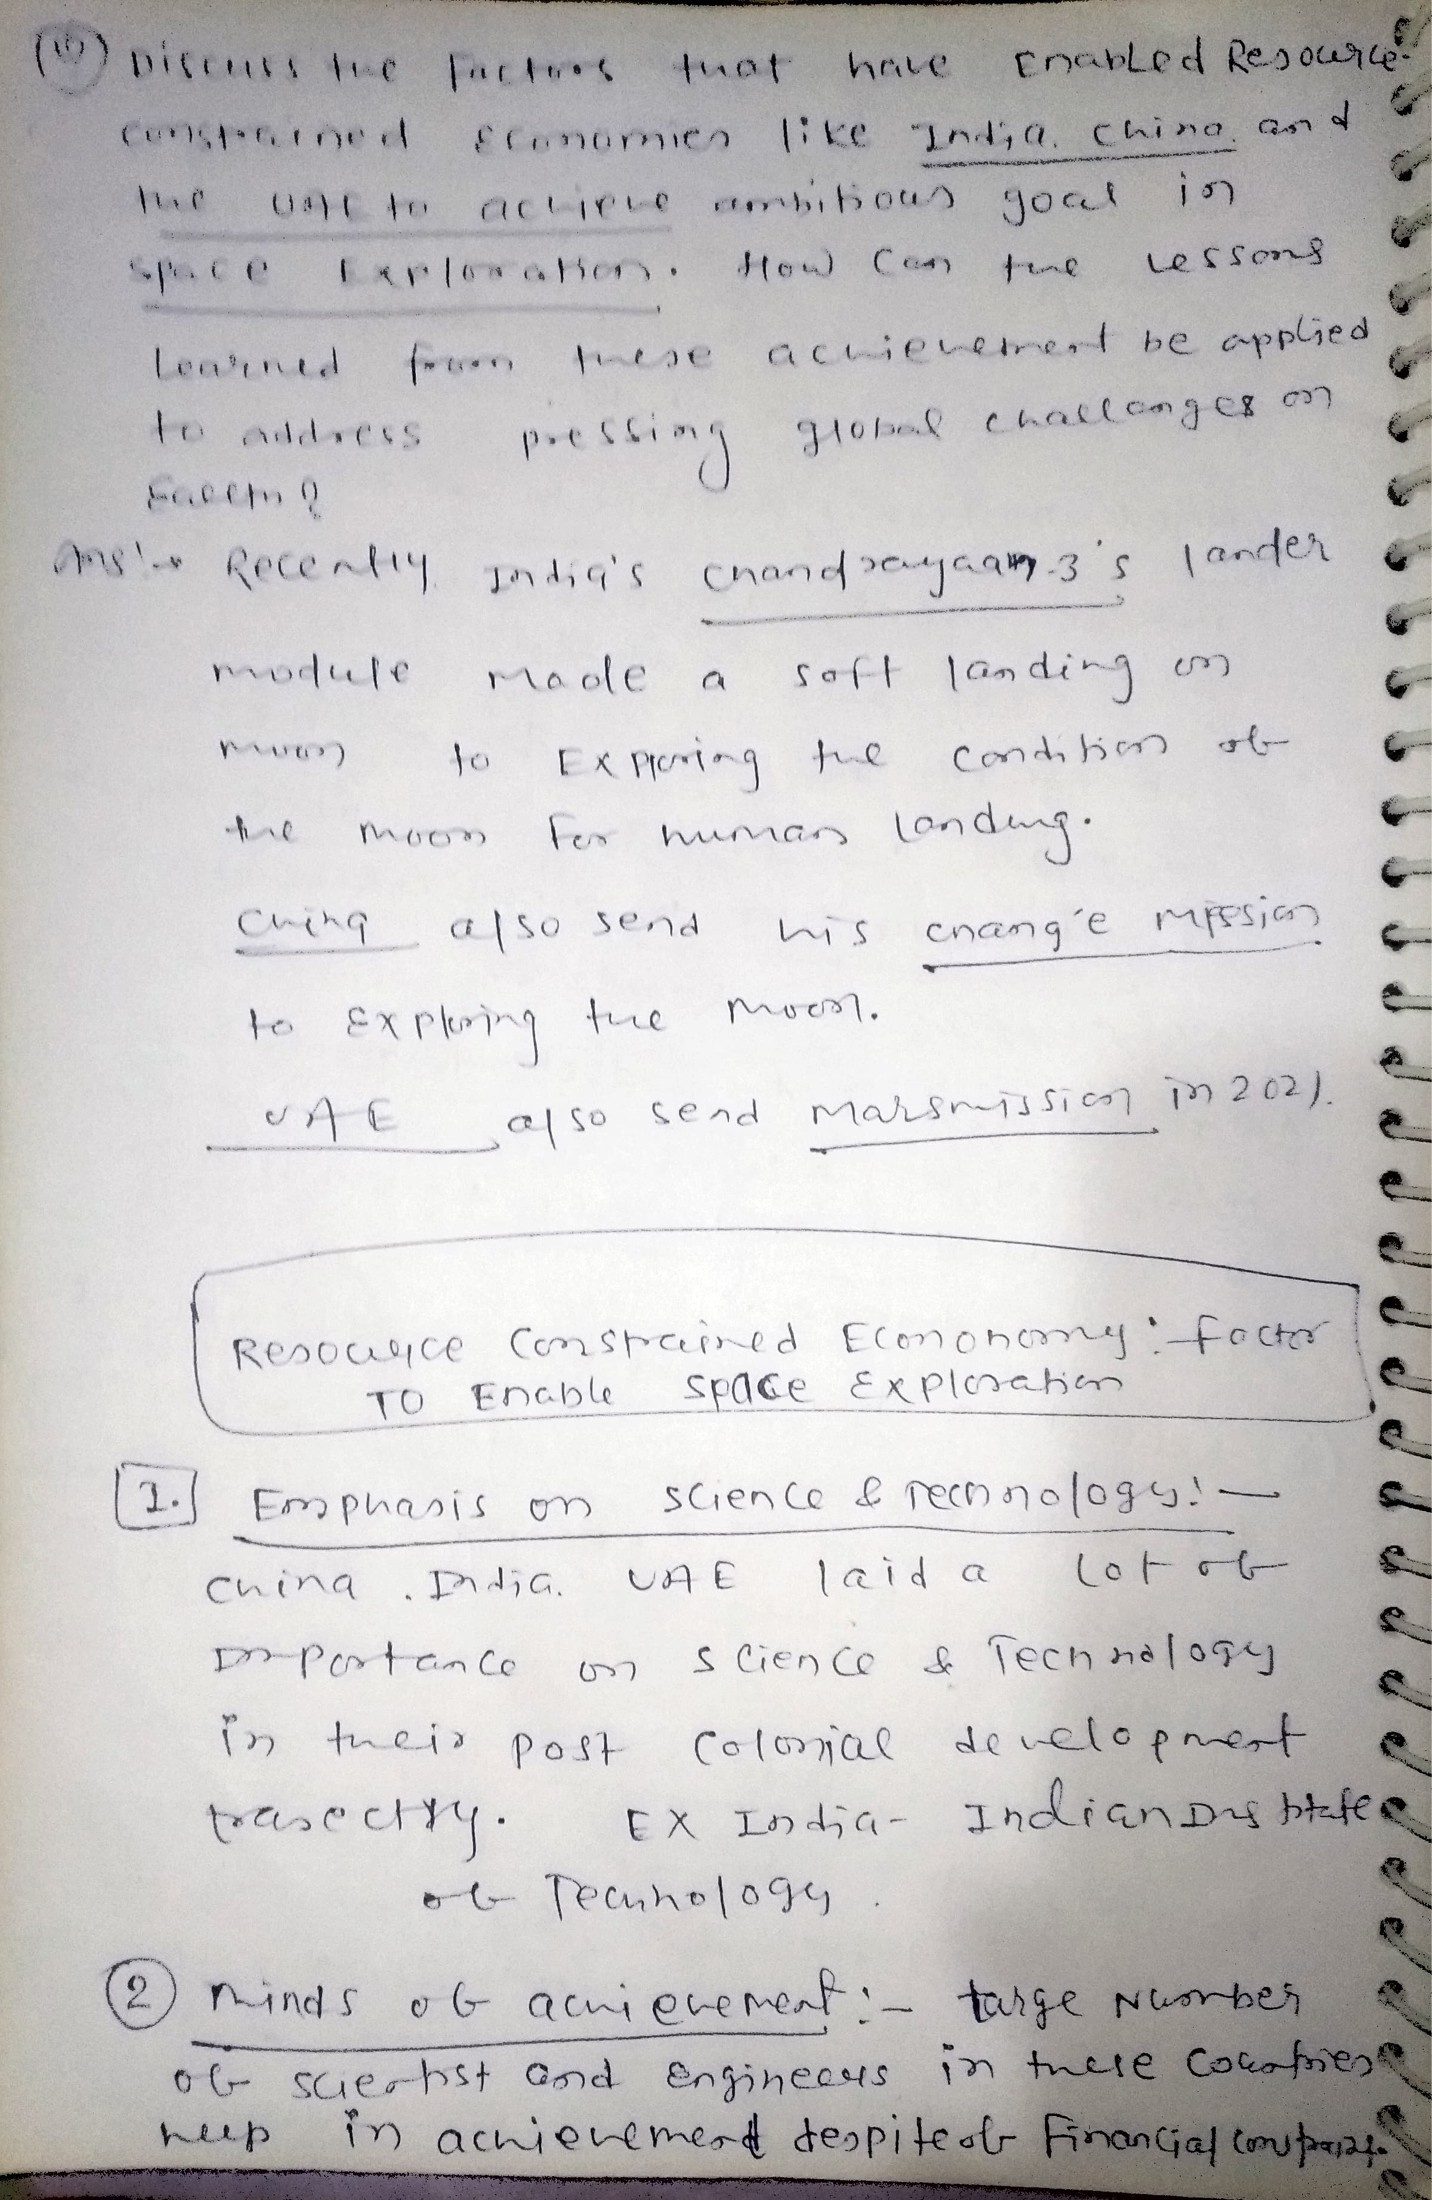 (10) Discuss the factors that have Enabled Resource-
constrained Economies like India, China, and
the UAE to achieve ambitious goal in
space Exploration. How can the Lessons
Learned from these achievement be applied
to address pressing global challanges on
Earth?
Ans:→ Recently India's chandrayaan-3's lander
module made a soft landing on
moon to Exploring the condition of
the moon for human landing.
China also send his chang'e mission
to Exploring the moon.
UAE also send marsmission in 2021.
Resource Constrained Econonomy: factor
TO Enable space Exploration
1. Emphasis on science & Technology:—
China, India, UAE laid a lot of
Importance on Science & Technology
in their post colonial development
trasectry. EX India- Indian Institute
of Technology.
2 minds of achievement:- Large Number
of scientist and Engineers in these Countries
help in achievement despite of Financial